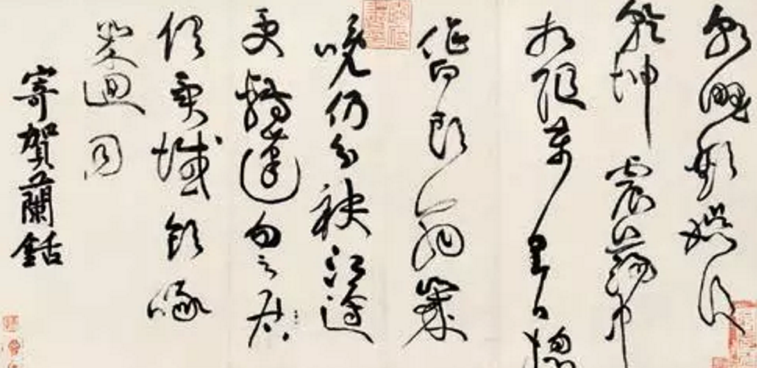 朝野歡娱後
乾坤震蕩中
相随萬里日揔
作白頭翁歲
晚仍分袂江邊
更轉蓬勿云
俱異域飲啄
幾迴同
寄賀蘭銛